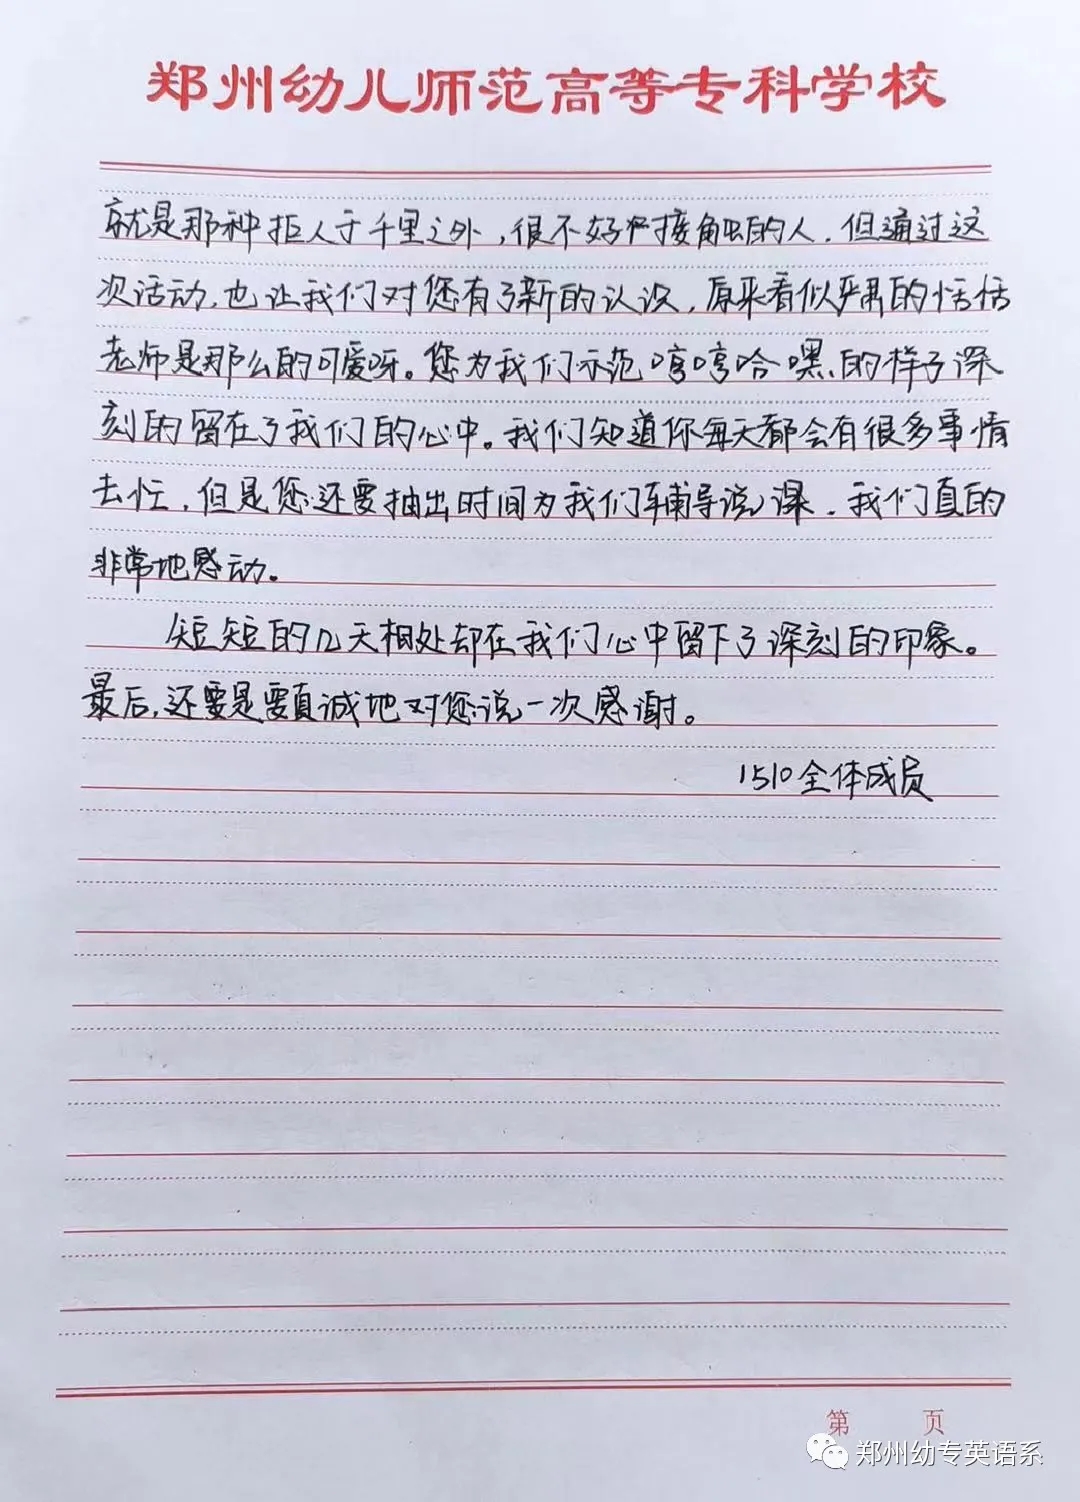 郑州幼儿师范高等专科学校
就是那种拒人于千里之外，很不好接触的人．但通过这
次活动，也让我们对您有了新的认识，原来看似严肃的恬恬
老师是那么的可爱呀。您为我们示范哼哼哈嘿的样子深
刻的留在了我们的心中。我们知道你每天都会有很多事情
去忙，但是您还要抽出时间为我们辅导说课．我们真的
非常地感动。
短短的几天相处却在我们心中留下了深刻的印象。
最后，还要是要真诚地对您说一次感谢。
1510全体成员
第 页
郑州幼专英语系